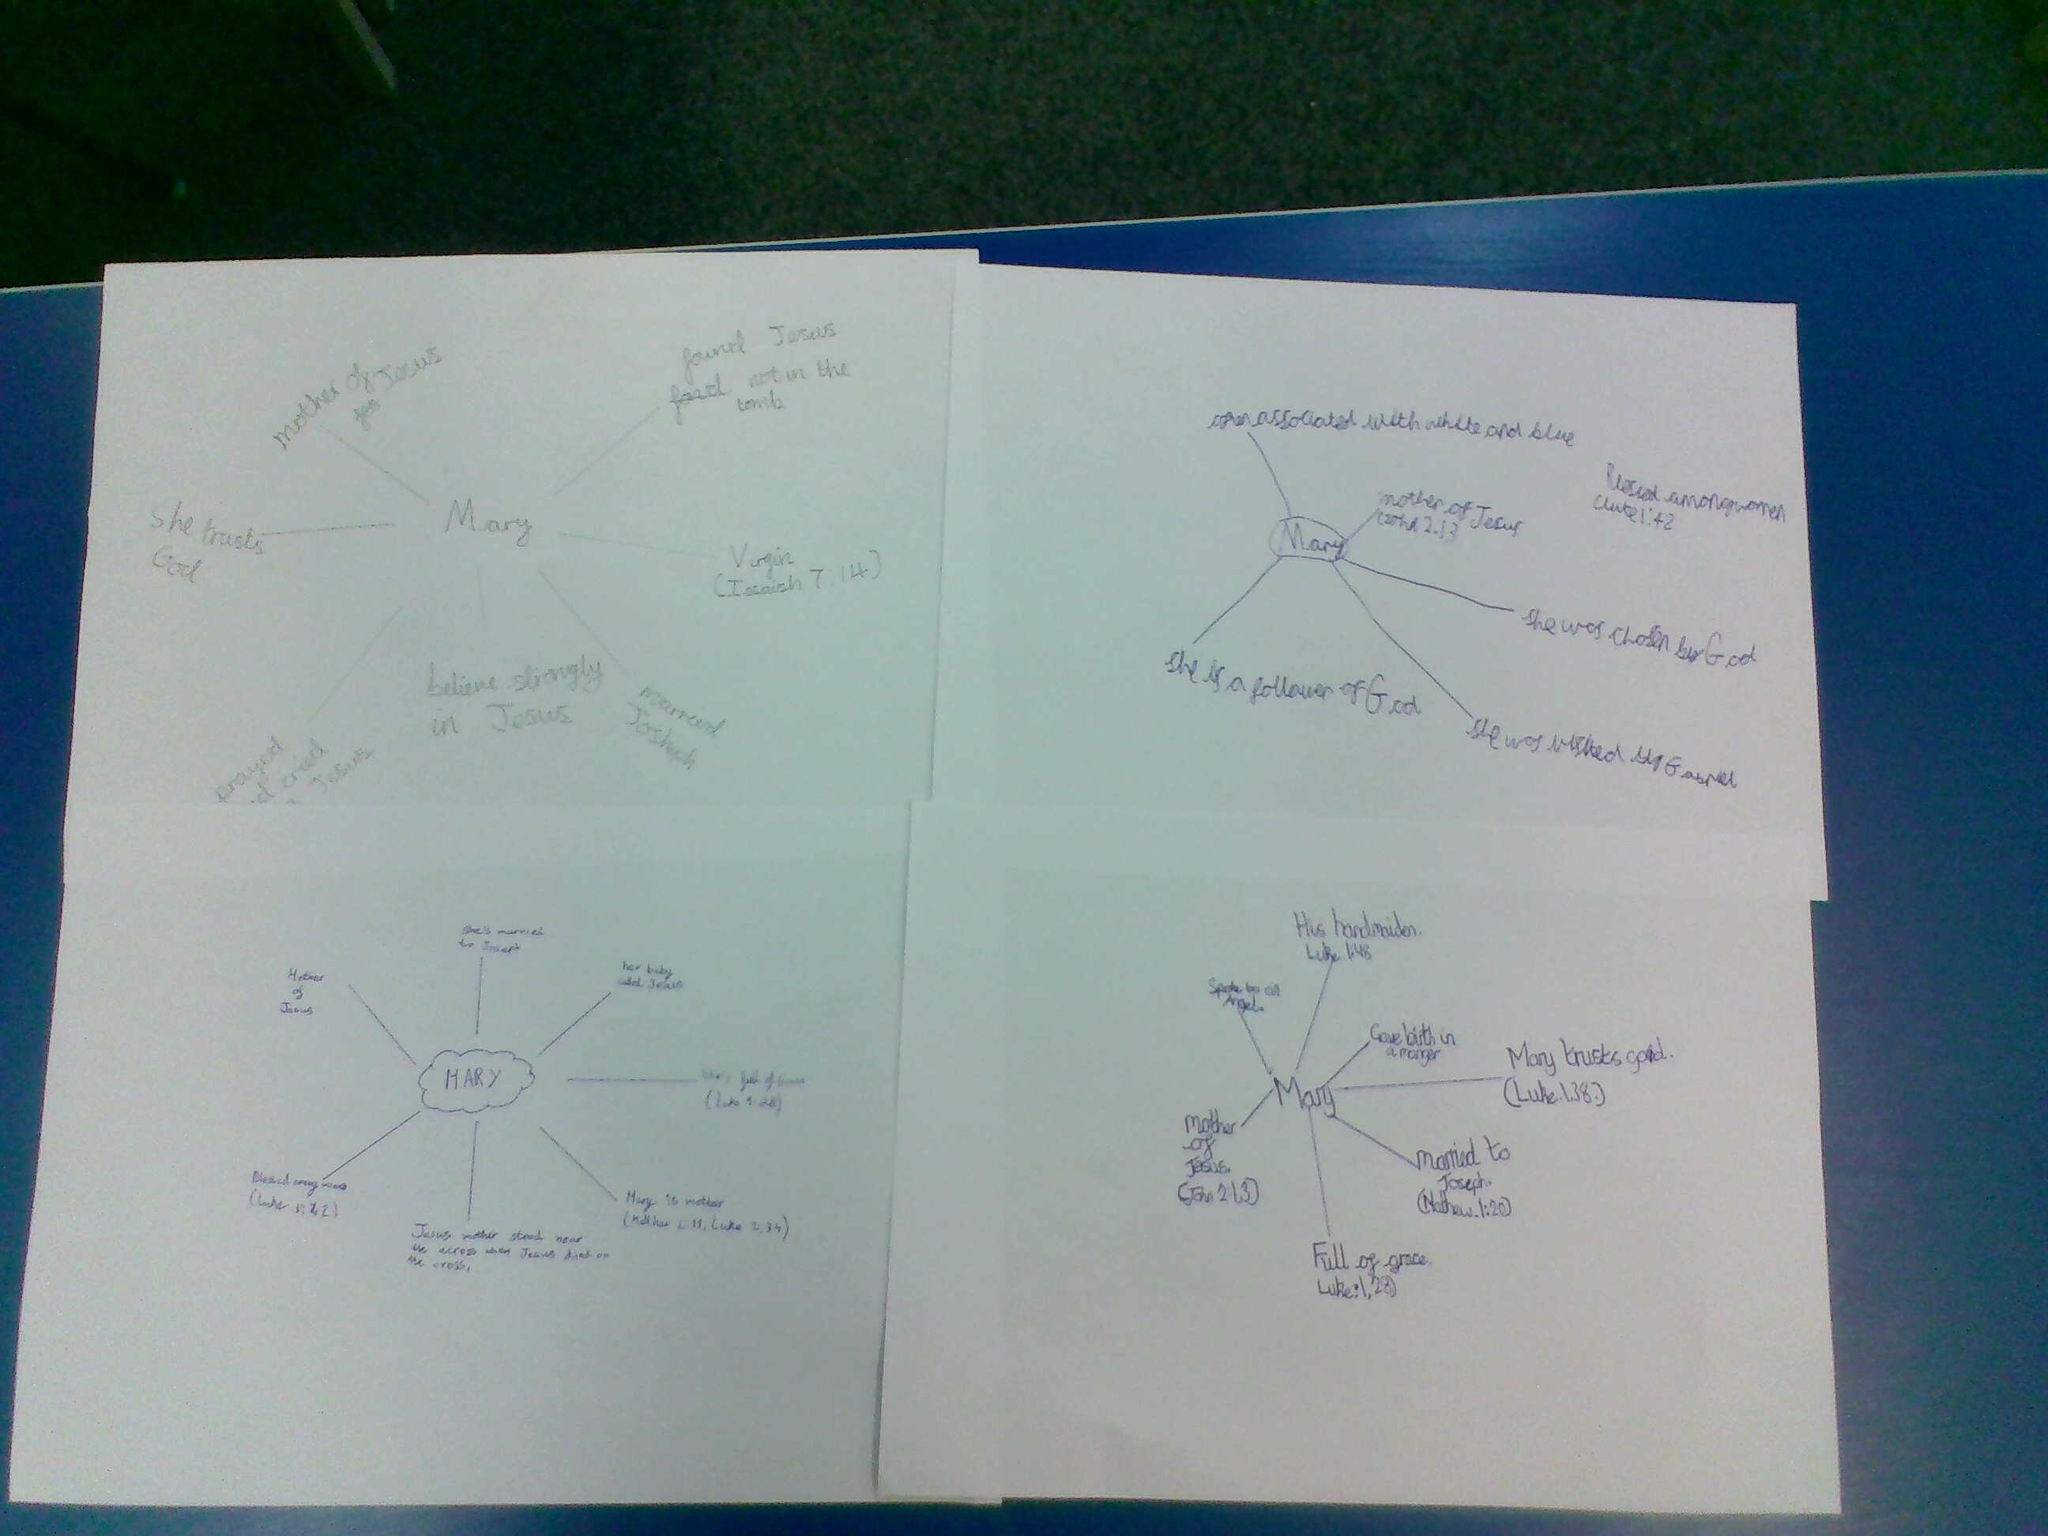 Mother of
Jos Jesus
found Jesus
found not in the
tomb
Mary
She trusts
God
Virgin
(Isaaish 7:14)
believe strongly
in Jesus
married
Josheph
prayed
cried
Jesus
open associated with white and blue
Blessed among women
Luke 1:42
mother of Jesus
John 2:1,3
Mary
she was chosen by God
she is a follower of God
she was visited by Gabriel
she's married
to Joseph
Mother
of
Jesus
her baby
called Jesus
MARY
She's full of Grace
(Luke 1:28)
Blessed among women
(Luke 1:42)
Mary is mother
(Matthew 2:11, Luke 2:34)
Jesus mother stood near
the across when Jesus died on
the cross,
His handmaiden.
Luke 1:48
Spoke to an
Angel.
Gave birth in
a manger
Mary trusts god.
(Luke.1:38.)
Mary
Mother
of
Jesus.
(John 2:1,3)
Married to
Joseph.
(Mathew.1:20)
Full of grace.
Luke:1,28)